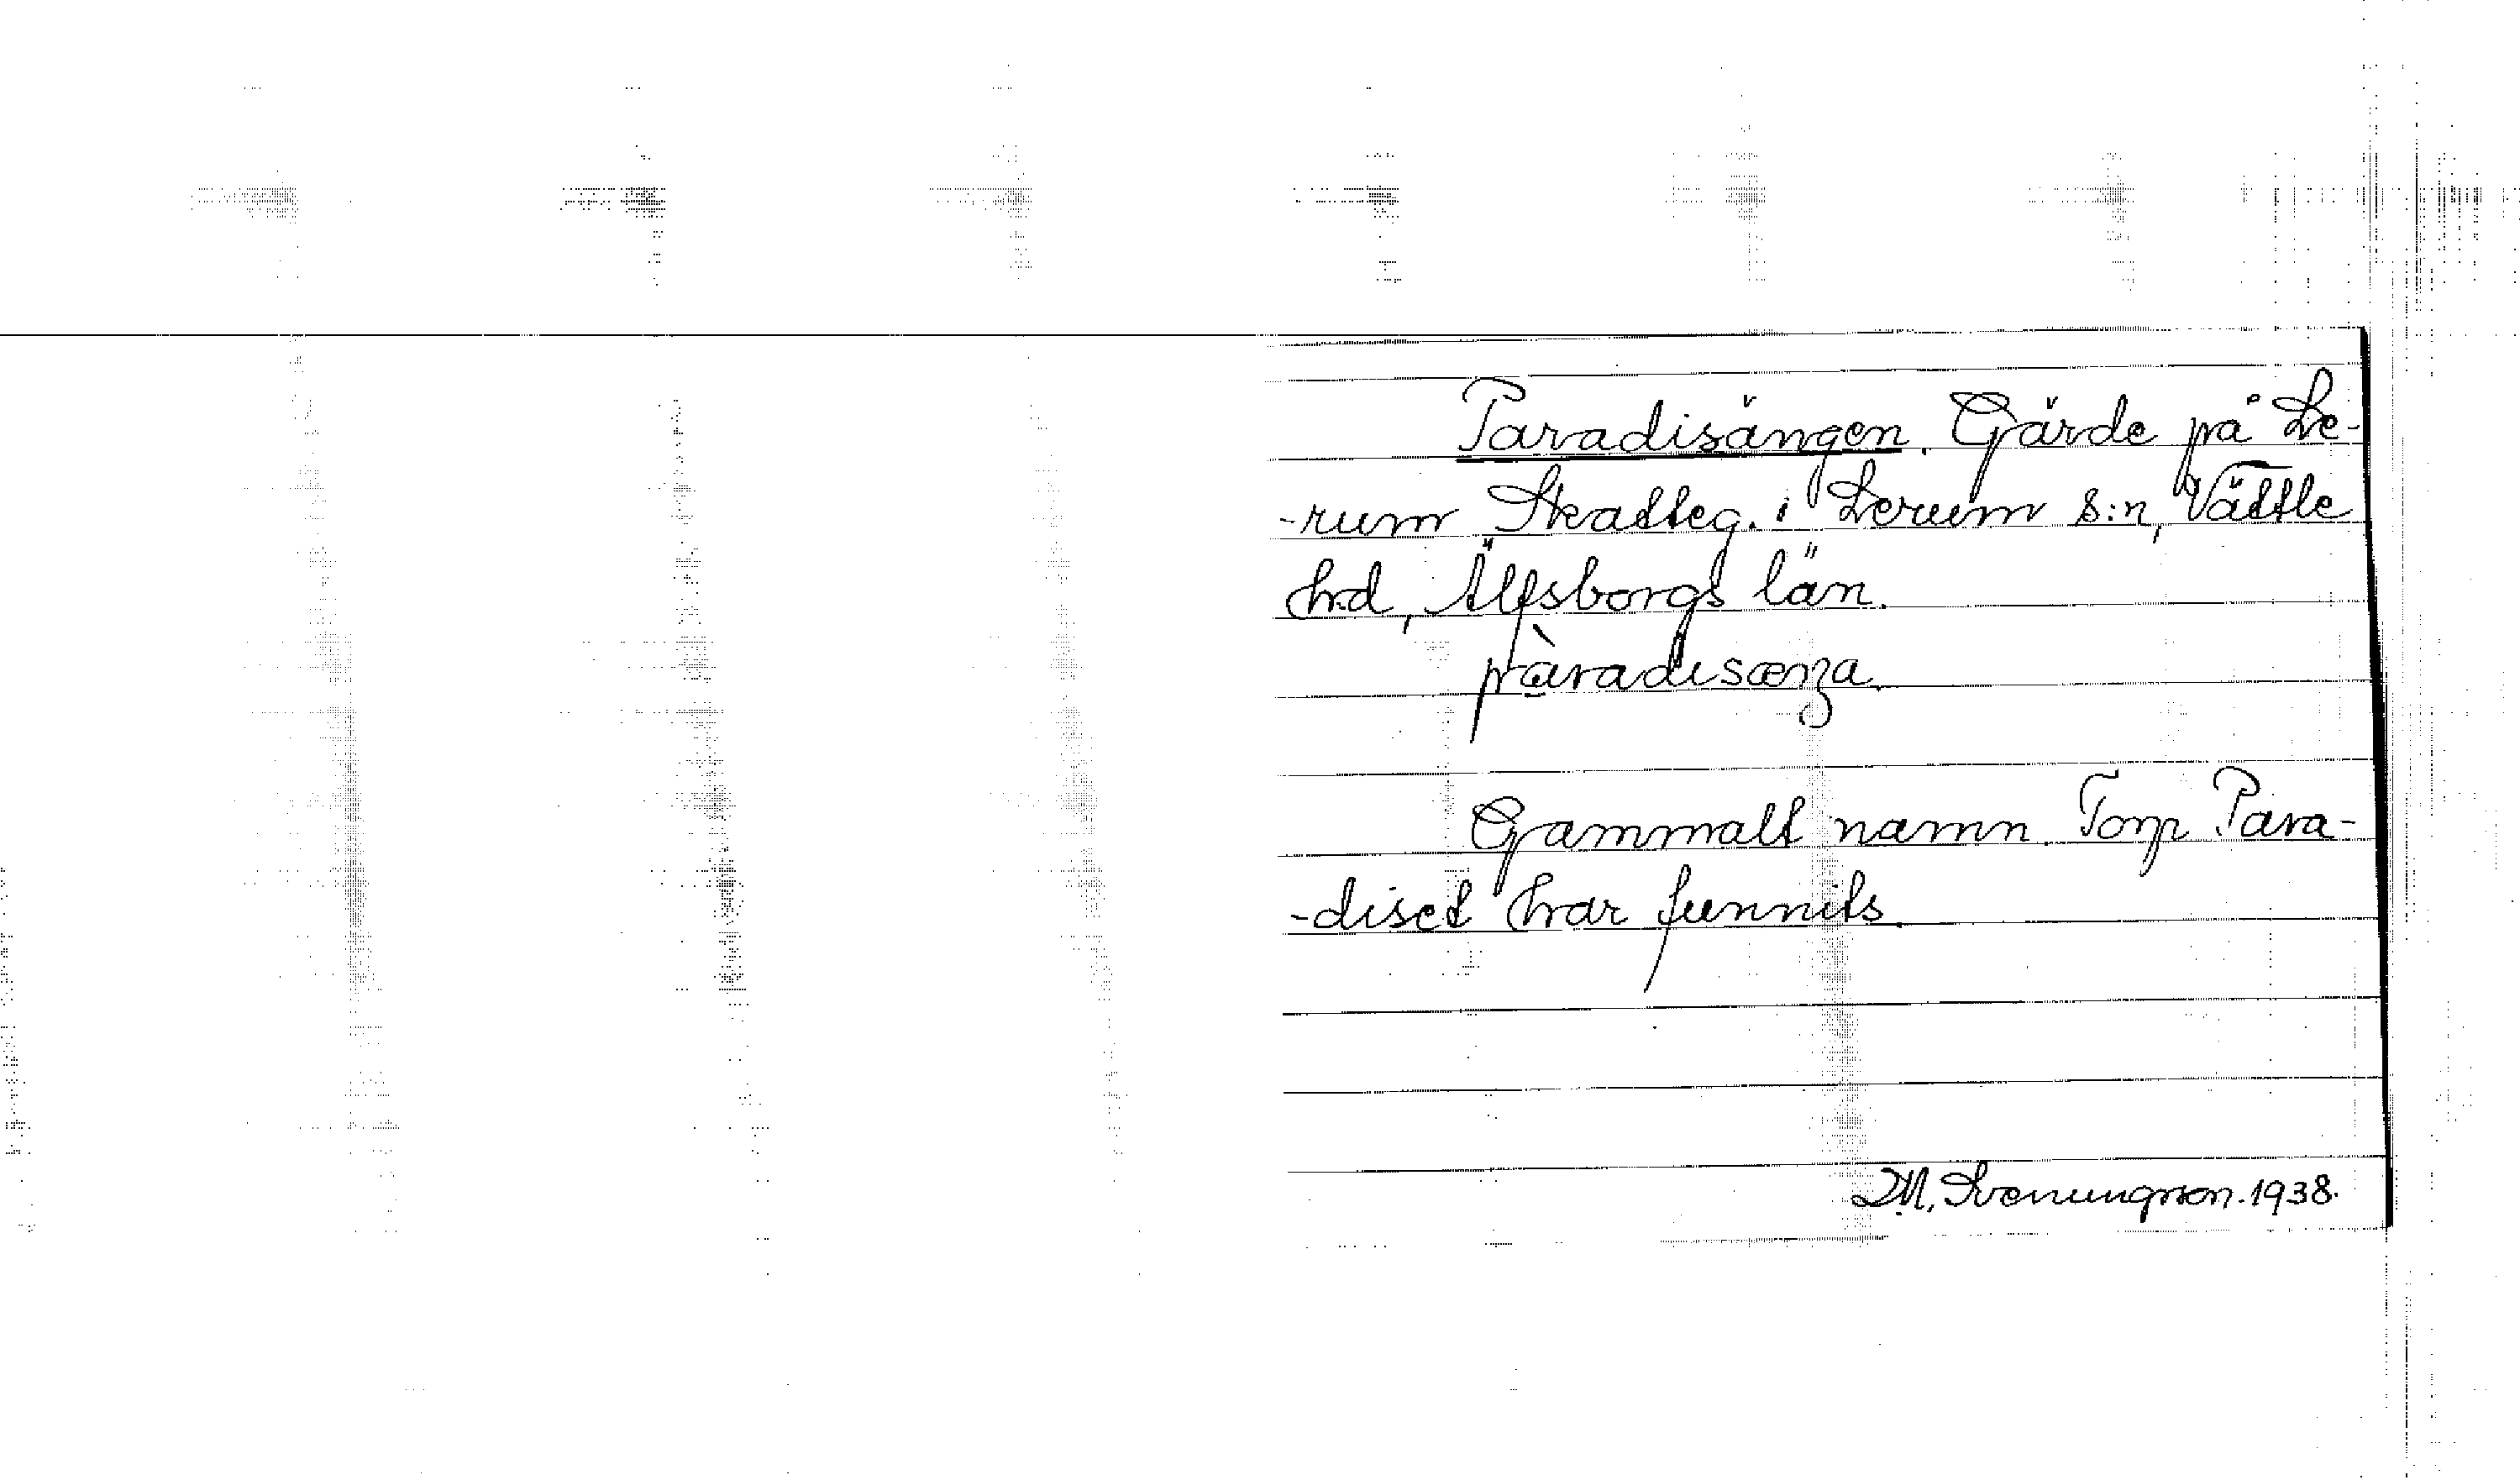 Paradisängen. Gärde på Le-
-rum Skatteg. i Lerum s:n, Vättle
hd, Älfsborgs län.
Gammalt namn. Torp Para-
-diset har funnits.
M. Svenungson. 1938.